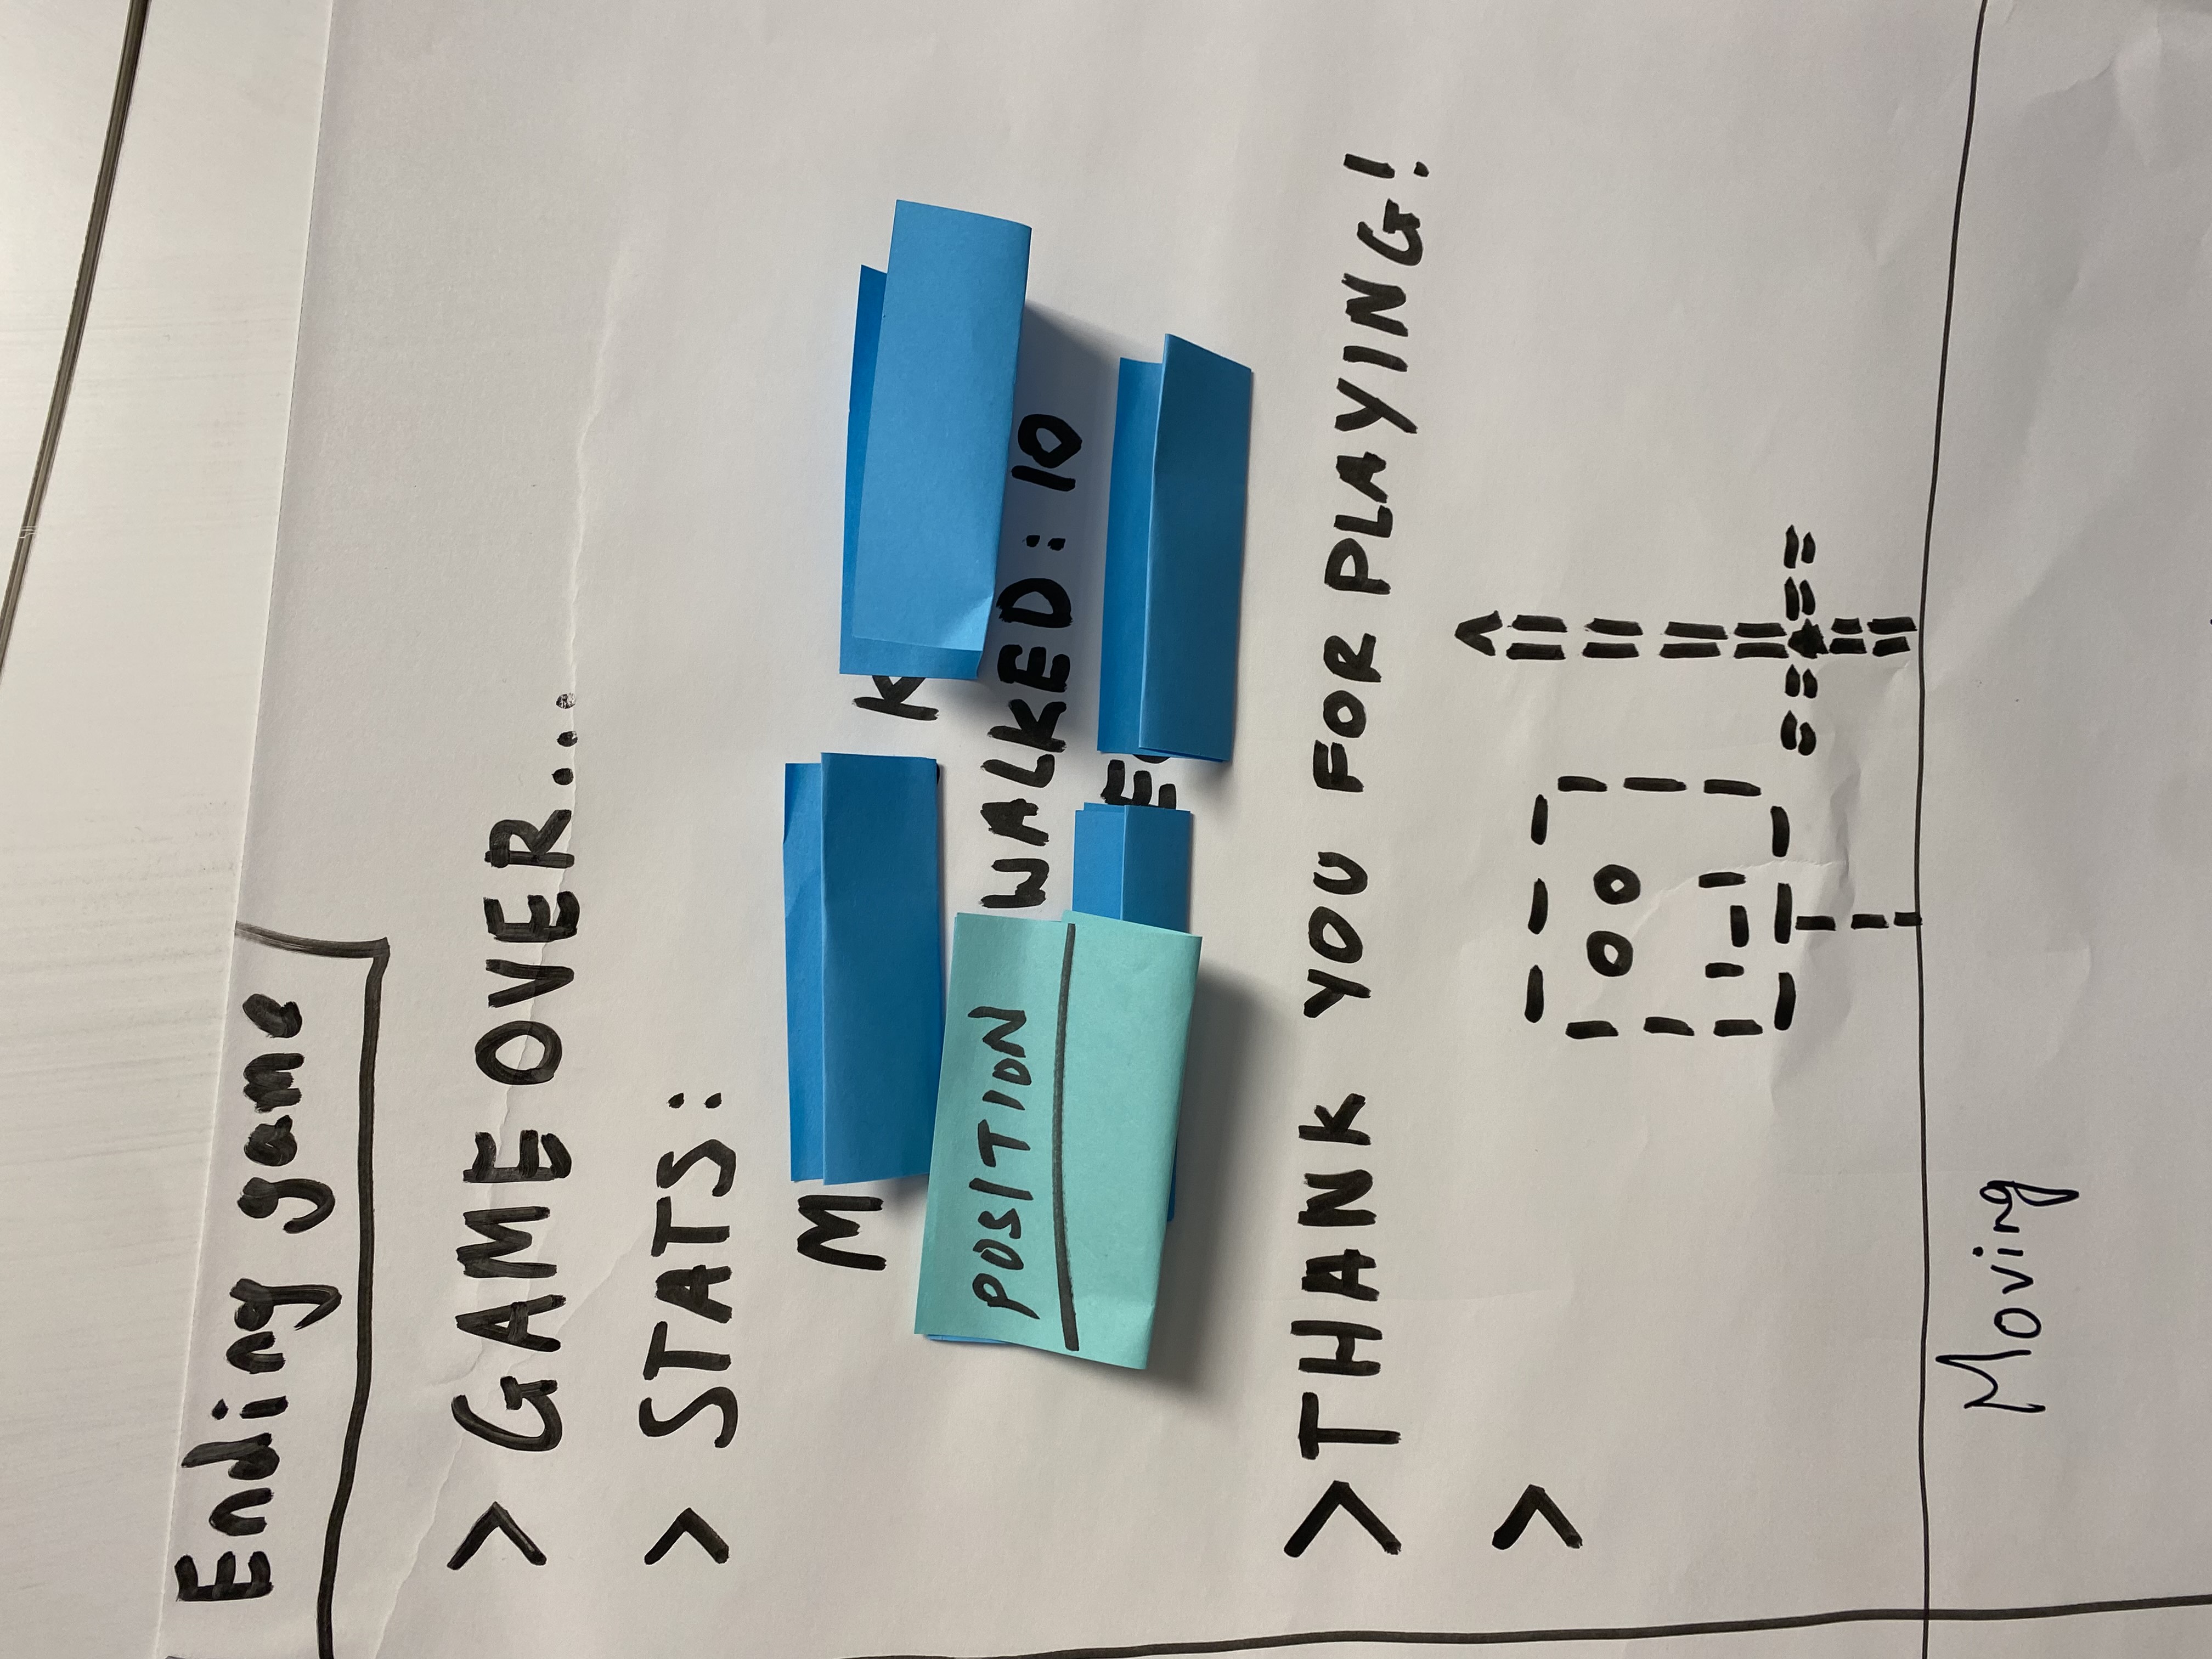 Ending game
> GAME OVER...
> STATS:
POSITION
WALKED: 10
> THANK YOU FOR PLAYING!
>
Moving